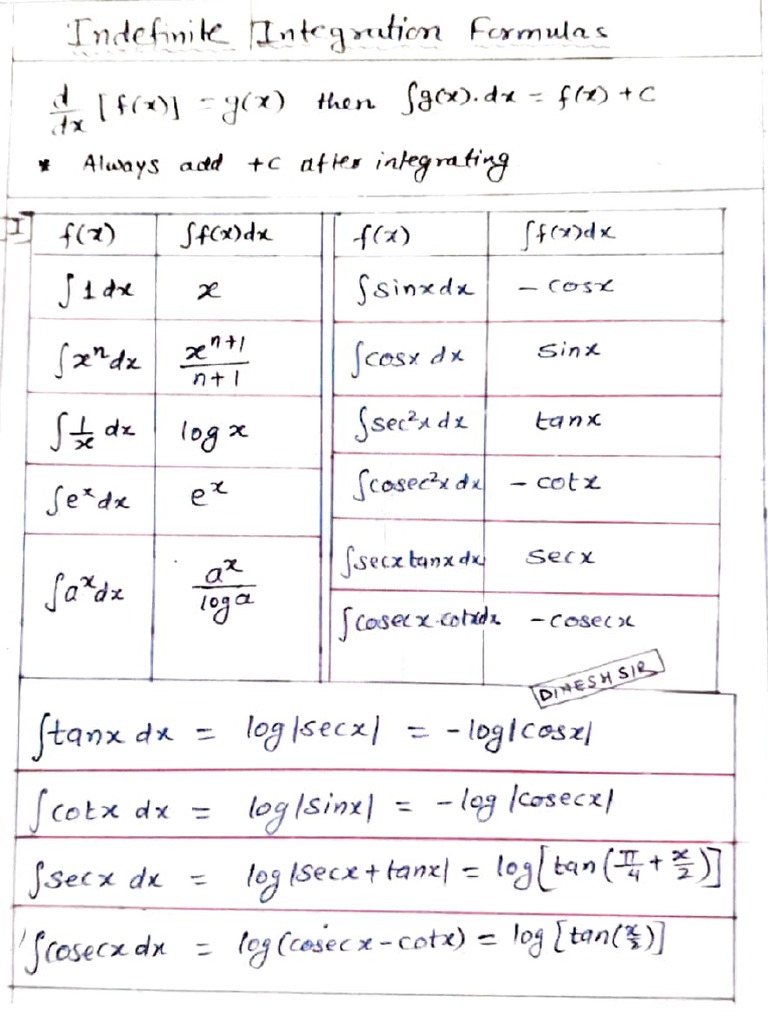 Indefinite Integration Formulas
d/dx [f(x)] = g(x) then ∫g(x).dx = f(x) + c
* Always add +c after integrating
I
f(x) ∫f(x)dx f(x) ∫f(x)dx
∫1dx x ∫sinxdx - cosx
∫xⁿdx xⁿ⁺¹/n+1 ∫cosx dx sinx
∫1/x dx log x ∫sec²x dx tanx
∫eˣdx eˣ ∫cosec²x dx - cotx
∫aˣdx aˣ/loga ∫secxtanxdx secx
∫cosecx.cotxdx -cosecx
DINESH SIR
∫tanx dx = log|secx| = -log|cosx|
∫cotx dx = log|sinx| = -log|cosecx|
∫secx dx = log|secx+tanx| = log[tan(π/4 + x/2)]
∫cosecx dx = log(cosecx-cotx) = log[tan(x/2)]